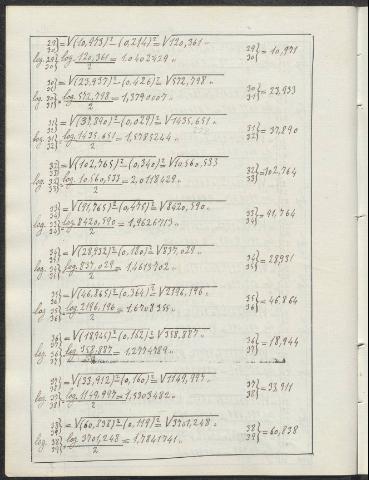 29/30} = √(10,973)² - (0,214)² = √120,361 "
log. 29/30} log. 120,361/2 = 1.0402429 " 29/30} = 10,971
30/31} = √(23,937)² - (0,426)² = √572,798 "
log. 30/31} log. 572,798/2 = 1,3790007 " 30/31} = 23,933
31/32} = √(37,890)² - (0,029)² = √1435,651 "
log. 31/32} log. 1435,651/2 = 1,5785244 " 31/32} = 37,890
32/33} = √(102,765)² - (0,340)² = √10.560,533
log. 32/33} log. 10.560,533/2 = 2,0118429 " 32/33} = 102,764
33/34} = √(91,765)² - (0,475)² = √8420,590 "
log. 33/34} log. 8420,590/2 = 1,9626713 " 33/34} = 91,764
34/35} = √(28,932)² - (0,180)² = √837,029 "
log. 34/35} log. 837,029/2 = 1,4613702 " 34/35} = 28,931
35/36} = √(46,865)² - (0,364)² = √2196,196 "
log. 35/36} log. 2196,196/2 = 1,6708355 " 35/36} = 46,864
36/37} = √(18,945)² - (0,152)² = √358,887 "
log. 36/37} log. 358,887/2 = 1,2774789 " 36/37} = 18,944
37/38} = √(33,912)² - (0,160)² = √1149,997 "
log. 37/38} log. 1149,997/2 = 1,5303482 " 37/38} = 33,911
38/39} = √(60,838)² - (0,119)² = √3701,248 "
log. 38/39} log. 3701,248/2 = 1,7841741 " 38/39} = 60,838